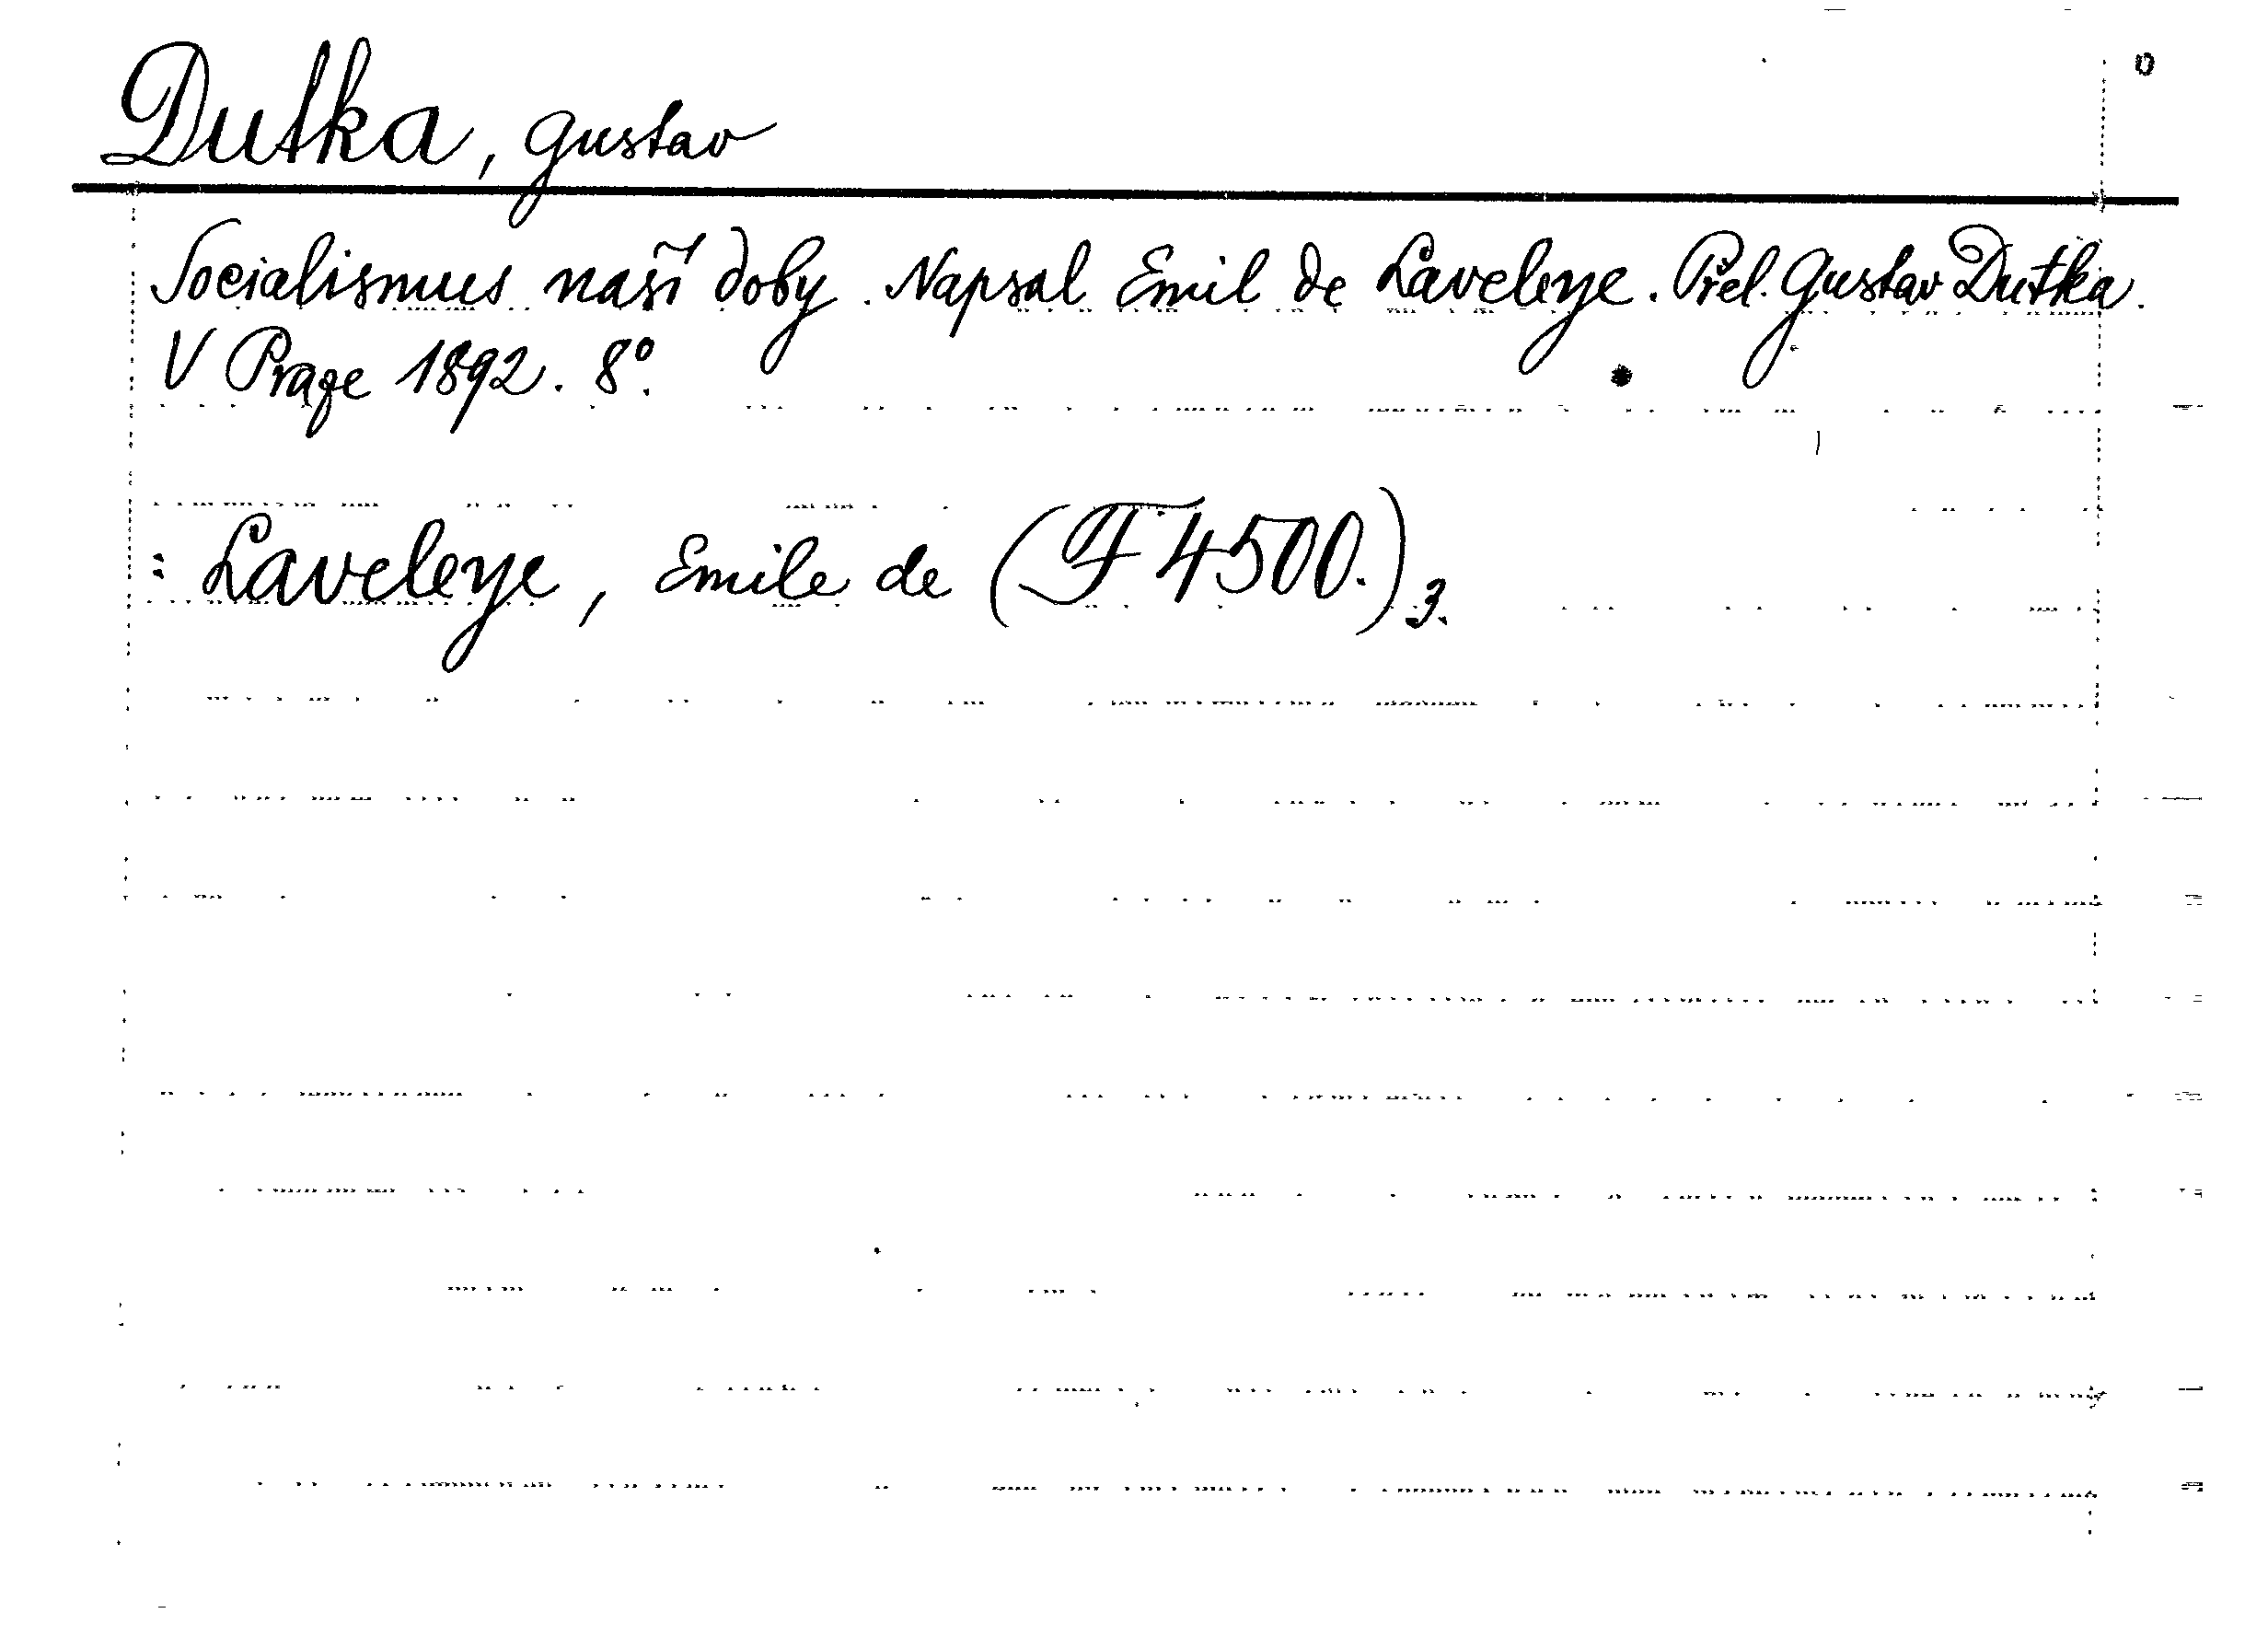 Dutka, Gustav
Socialismus naší doby. Napsal Emil de Laveleye. Přel. Gustav Dutka.
V Praze 1892. 8°.
: Laveleye, Emile de (F 4500.) 3.